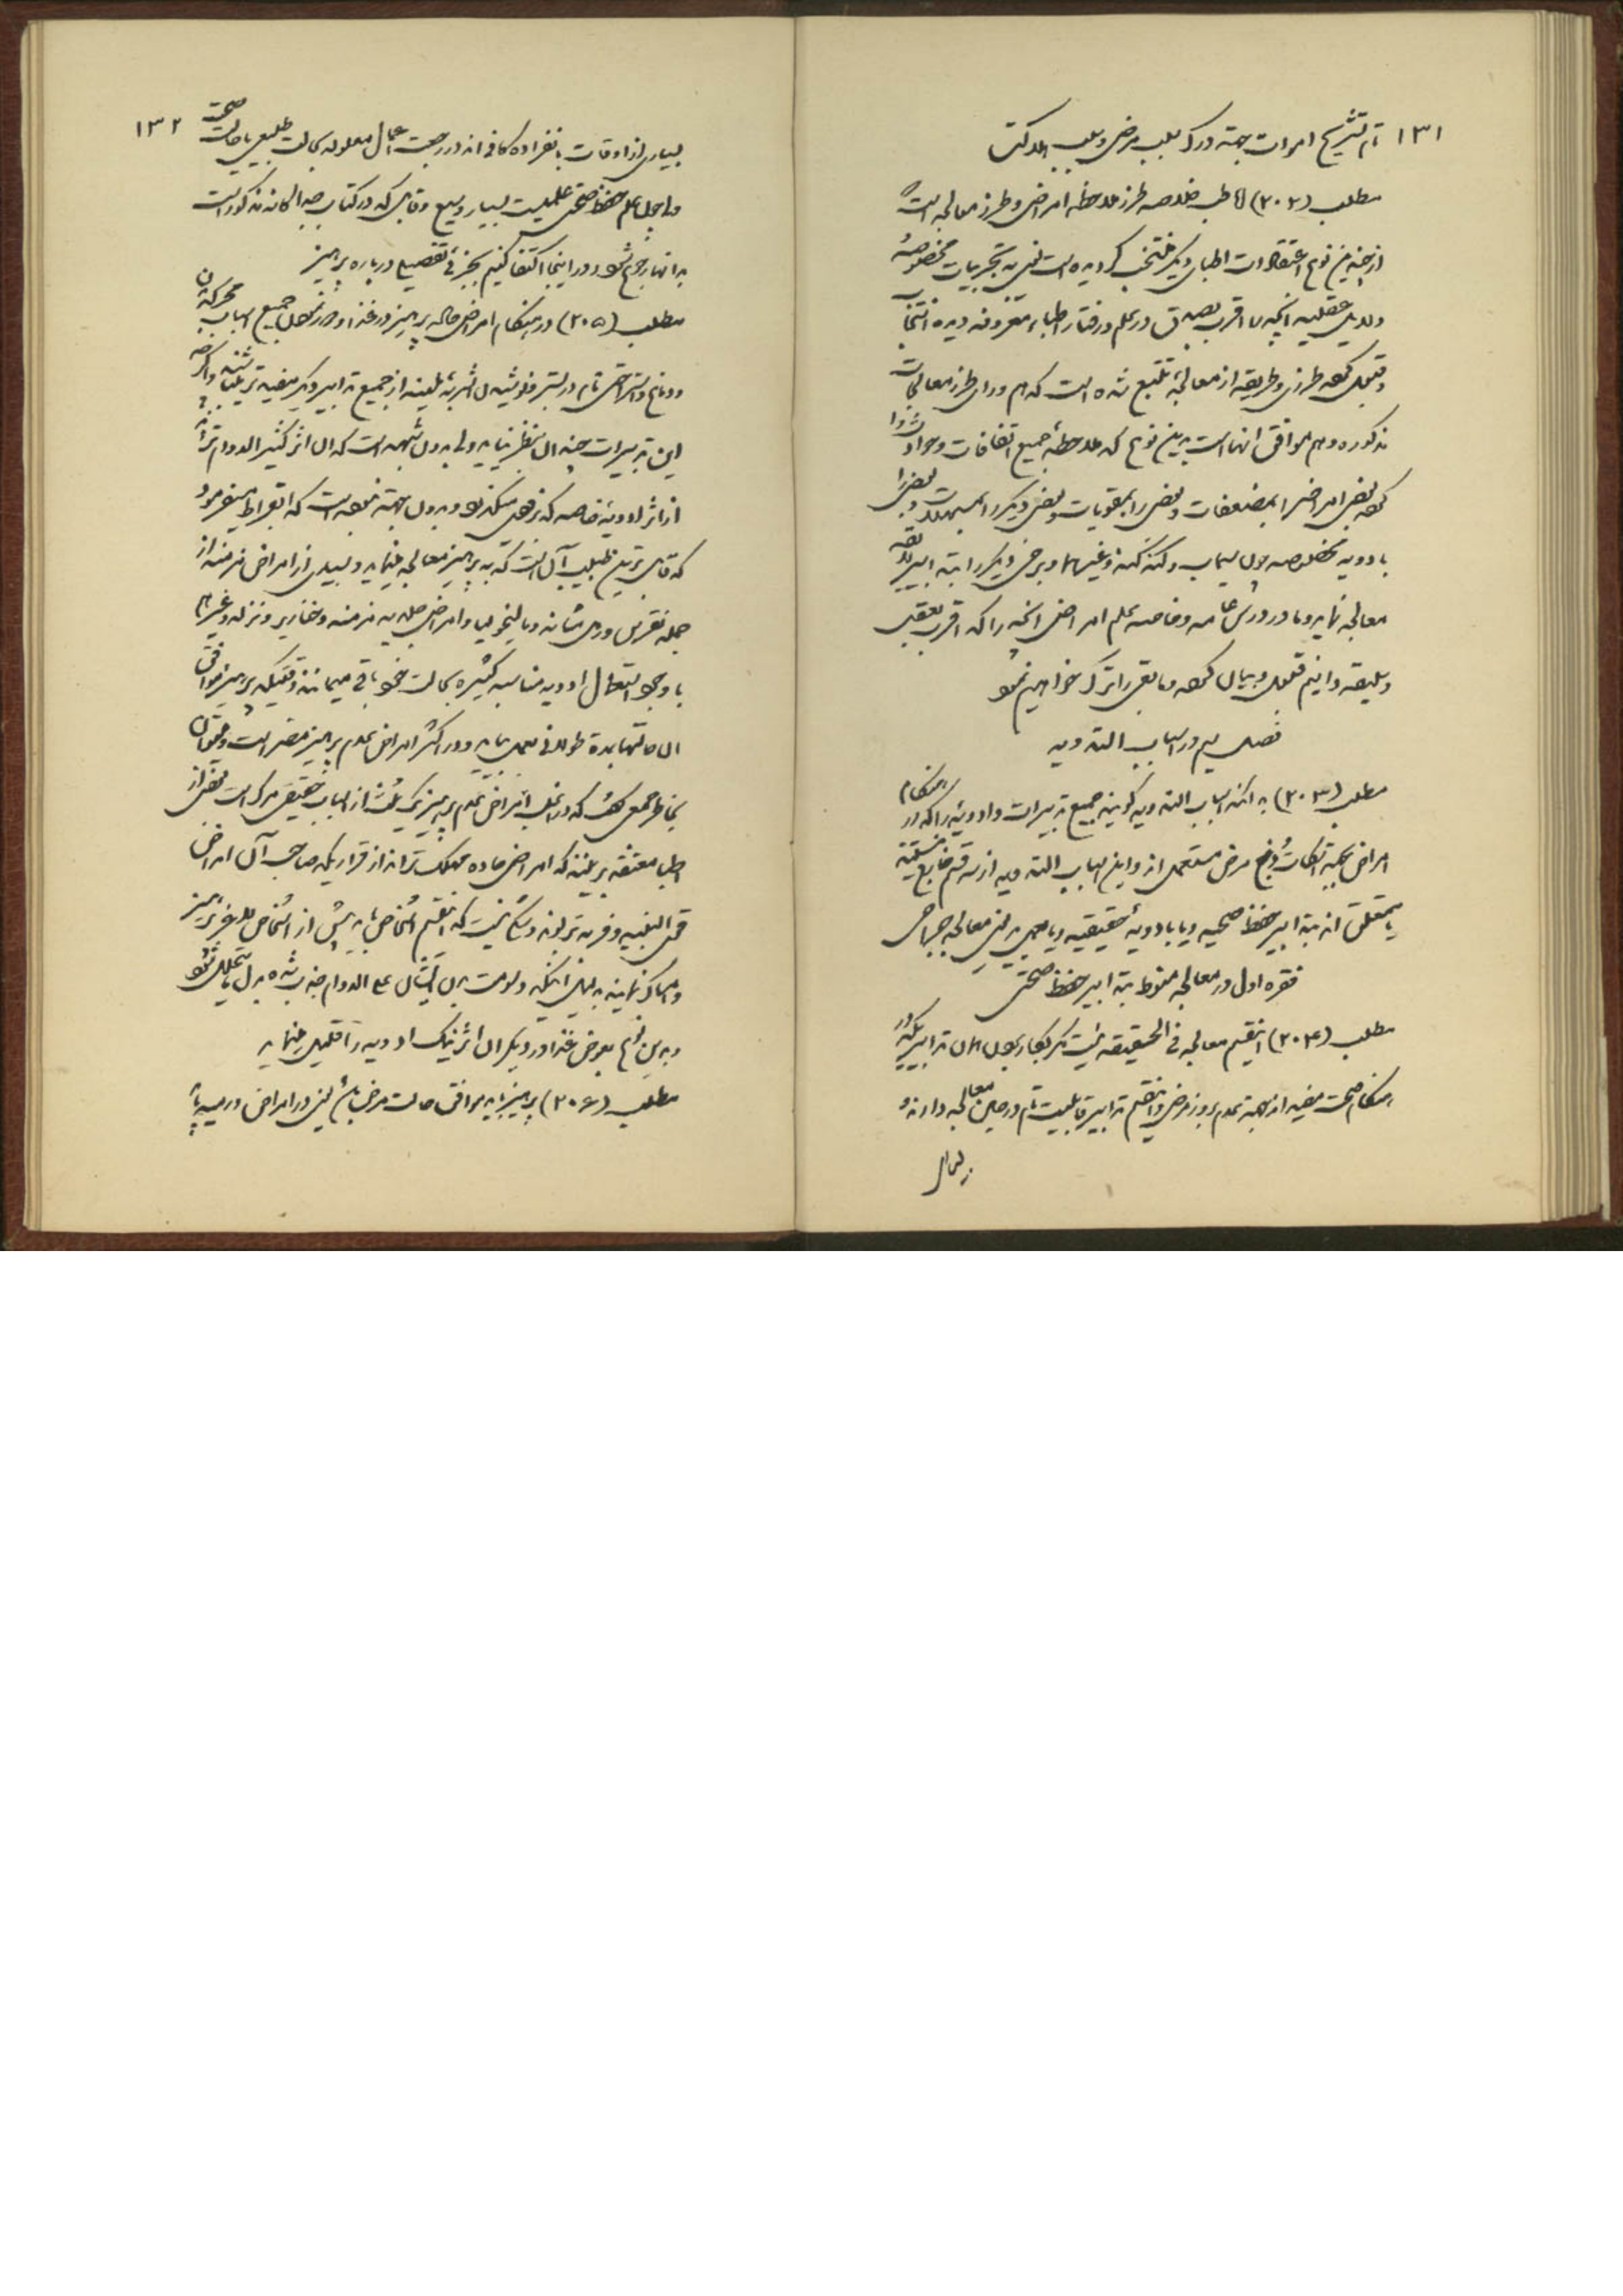 ۱۳۱
تام تشریح اموات جهة درک سبب مرض و سبب هلاکت
مطلب (۲۰۲) خلاصه طرز ملاحظه امراض و طرز معالجه است
از چندین نوع اعتقادات اطبای دیگر منتخب گردیده است یعنی به تجربیات مخصوصه
و دلایل عقلیه آنچه را اقرب بصدق در علم و رفتار اطباء متفرقه دیده انتخاب
و قبول کرده طرزی و طریقه از معالجه تتبع شده است که هم ورای طرز معالجات
مذکوره و هم موافق آنهاست بدین نوع که ملاحظه جمیع اتفاقات و حوادث را
کرده بعضی امراض را بمضعفات و بعضی را بمقویات و بعضی دیگر را بمسهلات و بعضی را
بادویه مخصوصه چون سیماب و کنه کنه و غیرهما و برخی دیگر را بتدابیر لایقه
معالجه نماید و ما در درس عامه و خاصه علم امراض آنچه را که اقرب بعقل
و سلیقه دانیم قبول و بیان کرده مابقی را ترک خواهیم نمود
فصل سیم در اسباب التداویه
مطلب (۲۰۳) بدانکه اسباب التداویه گویند جمیع تدبیرات و ادویه را که در هنگام
امراض بجهة رفع مرض مستعمل اند و این اسباب التداویه از سه قسم خارج نیستند
یا متعلق اند بتدابیر حفظ صحیه و یا بادویه حقیقیه و یا بعمل ید یعنی معالجه جراحی
فقره اول در معالجه منوط بتدابیر حفظ صحتی
مطلب (۲۰۴) اینقسم معالجه فی الحقیقه نیست مگر بکار بردن همان تدابیر که در
هنگام صحت مفید اند بجهة عدم بروز مرض و اینقسم تدابیر قابلیت تام در حین معالجه دارند و
بسیاری
۱۳۲
بسیاری از اوقات بانفراده کافی اند در رجعت اعمال معلوله بحالت طبیعی یا حالت صحت
ولی چون علم حفظ صحتی علمیست بسیار وسیع و قابل که در کتاب جداگانه مذکور است
بدانها رجوع شود و در اینجا اکتفا کنیم بجزئی تفصیلی درباره پرهیز
مطلب (۲۰۵) در هنگام امراض حاده پرهیز در غذا و دور نمودن جمیع اسباب محرکه از
دماغ و استراحتی تام در بستر و نوشیدن اشربه ملینه از جمیع تدابیر دیگر مفیدتر میباشند و اگرچه
این تدبیرات چندان بنظر نیاید ولی بدون شبهه است که آن اثر کثیر الدوام تر است
از اثر ادویه خاصه که ترقی میکند بود و بدون جهة نبوده است که ابقراط میفرمود
که قابل ترین طبیب آن است که به پرهیز معالجه مینماید و بسیاری از امراض مزمنه از
جمله نقرس و رمل مثانه و مالیخولیا و امراض جلدیه مزمنه و خنازیر و نزله و غیرها
با وجود استعمال ادویه مناسبه کثیره بحالت خود باقی میمانند وقتیکه پرهیز موافق
آن حالتها بمدة طولانی بعمل نیاید و در اکثر امراض عدم پرهیز مضر است و میتوان
بخاطر جمعی گفت که در اغلب امراض عدم پرهیز یک ثلث از اسباب حقیقی مرگ است بعضی از
اطبا معتقد بر اینند که امراض حاده مهلک ترند از قراریکه صاحب آن امراض
قوی البنیه و فربه تر بوند و شکی نیست که اینقسم اشخاص باید بیش از اشخاص لاغر پرهیز
و امساک نمایند بدلیل اینکه دسومت بدن ایشان علی الدوام جذب شده بدل ما یتحلل شود
و بدین نوع بعوض غذا و دیگر آن اثر نیک ادویه را قلیل مینماید
مطلب (۲۰۶) پرهیز باید موافق حالت مرض باشد یعنی در امراض ورمیه باید